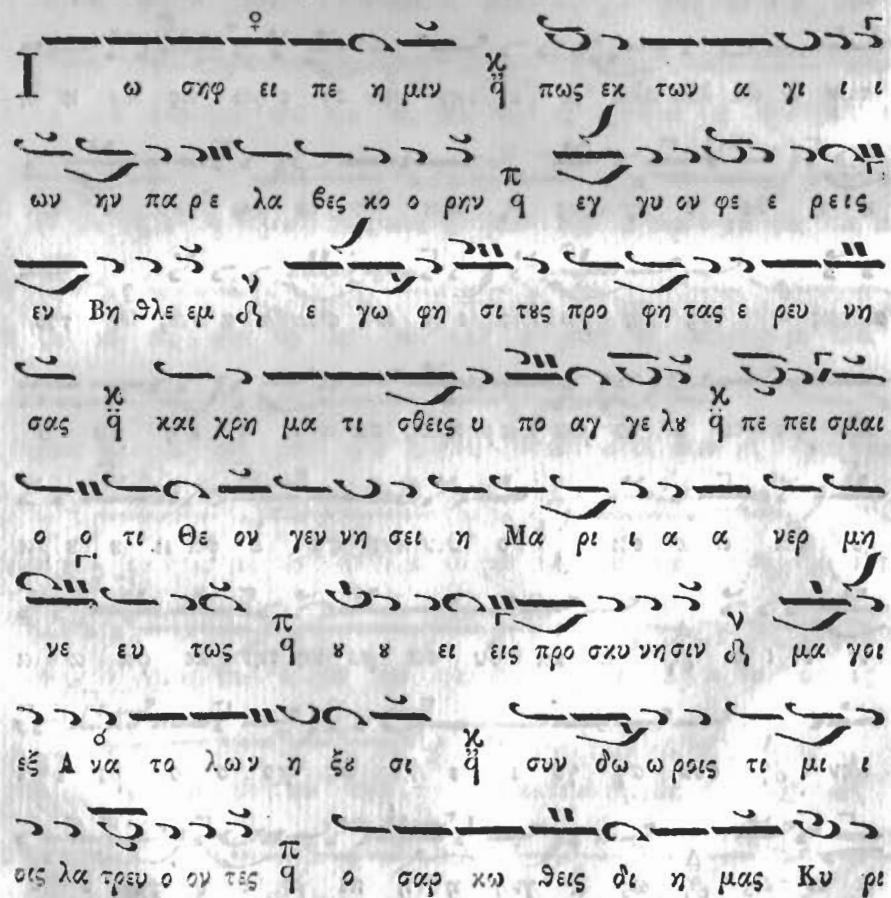 Ι ω σηφ ει πε η μιν ϰ q̈ πως εκ των α γι ι ι
ων ην πα ρε λα βες κο ο ρην π q εγ γυ ον φε ε ρεις
εν Βη θλε εμ ν ε γω φη σι τȣς προ φη τας ε ρευ νη
σας ϰ q̈ και χρη μα τι σθεις υ πο αγ γε λȣ ϰ q̈ πε πει σμαι
ο ο τι Θε ον γεν νη σει η Μα ρι ι α α νερ μη
νε ευ τως π q ȣ ȣ ει εις προ σκυ νησιν ν μα γοι
εξ Α να το λων η ξȣ σι ϰ q̈ συν δω ω ροις τι μι ι
οις λα τρευ ο ον τες π q ο σαρ κω θεις δι η μας Κυ ρι